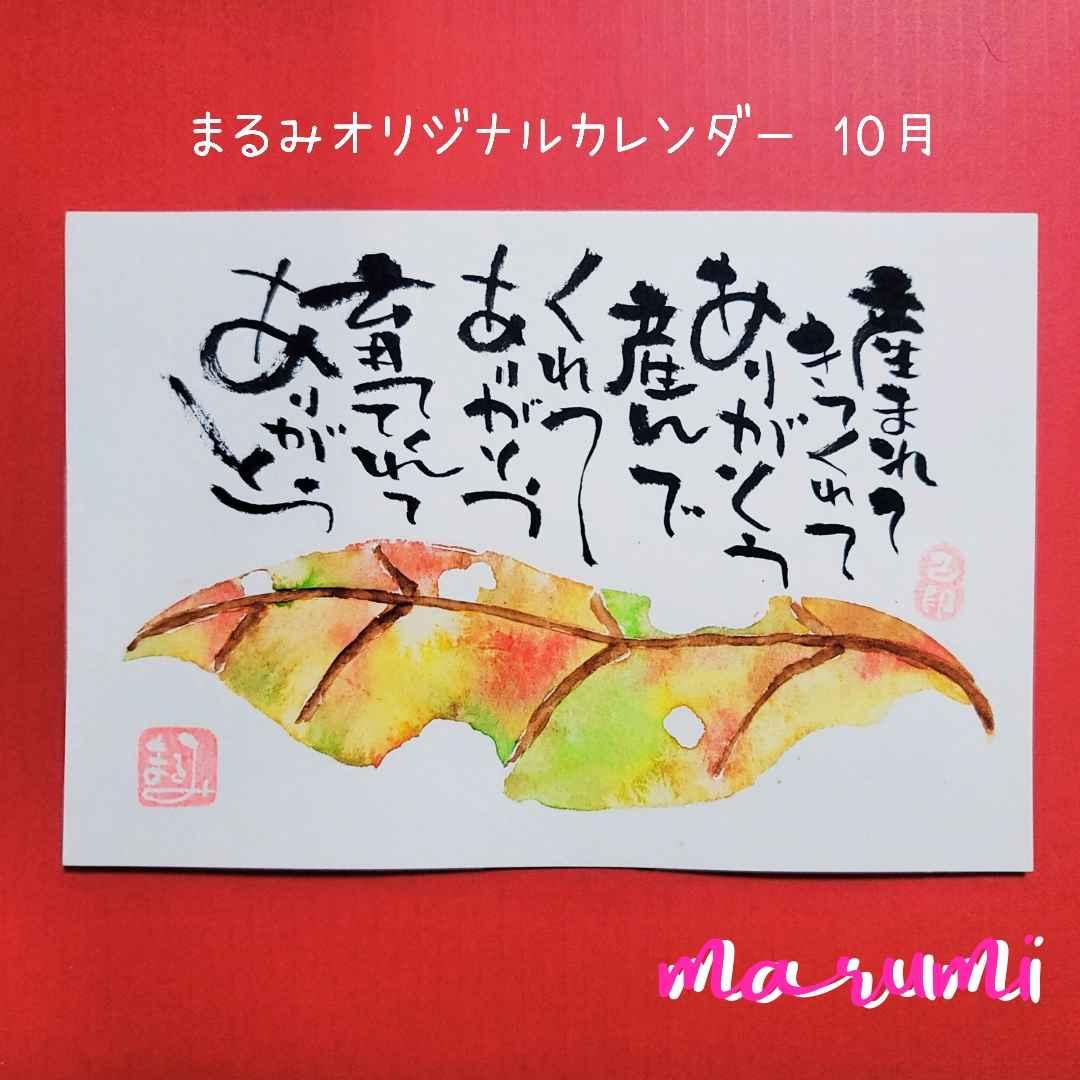 まるみオリジナルカレンダー 10月
産まれて
きてくれて
ありがとう
産んで
くれて
ありがとう
育ててくれて
ありがとう
まるみ
marumi